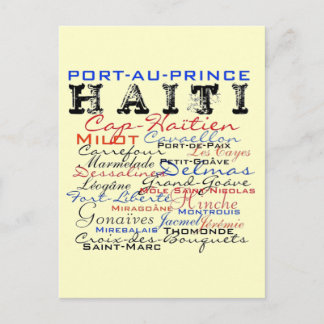 PORT-AU-PRINCE
HAITI
Cap-Haïtien
MILOT Cavaellon
Carrefour PORT-DE-PAIX
Les Cayes
Marmelade PETIT-GOÂVE
Dessalines Delmas
Léogâne Grand-Goâve
MÔLE SAINT-NICOLAS
Fort-Liberté Hinche
MIRAGOÂNE
MONTROUIS
Gonaïves Jacmel Jérémie
MIREBALAIS THOMONDE
Croix-des-Bouquets
SAINT-MARC